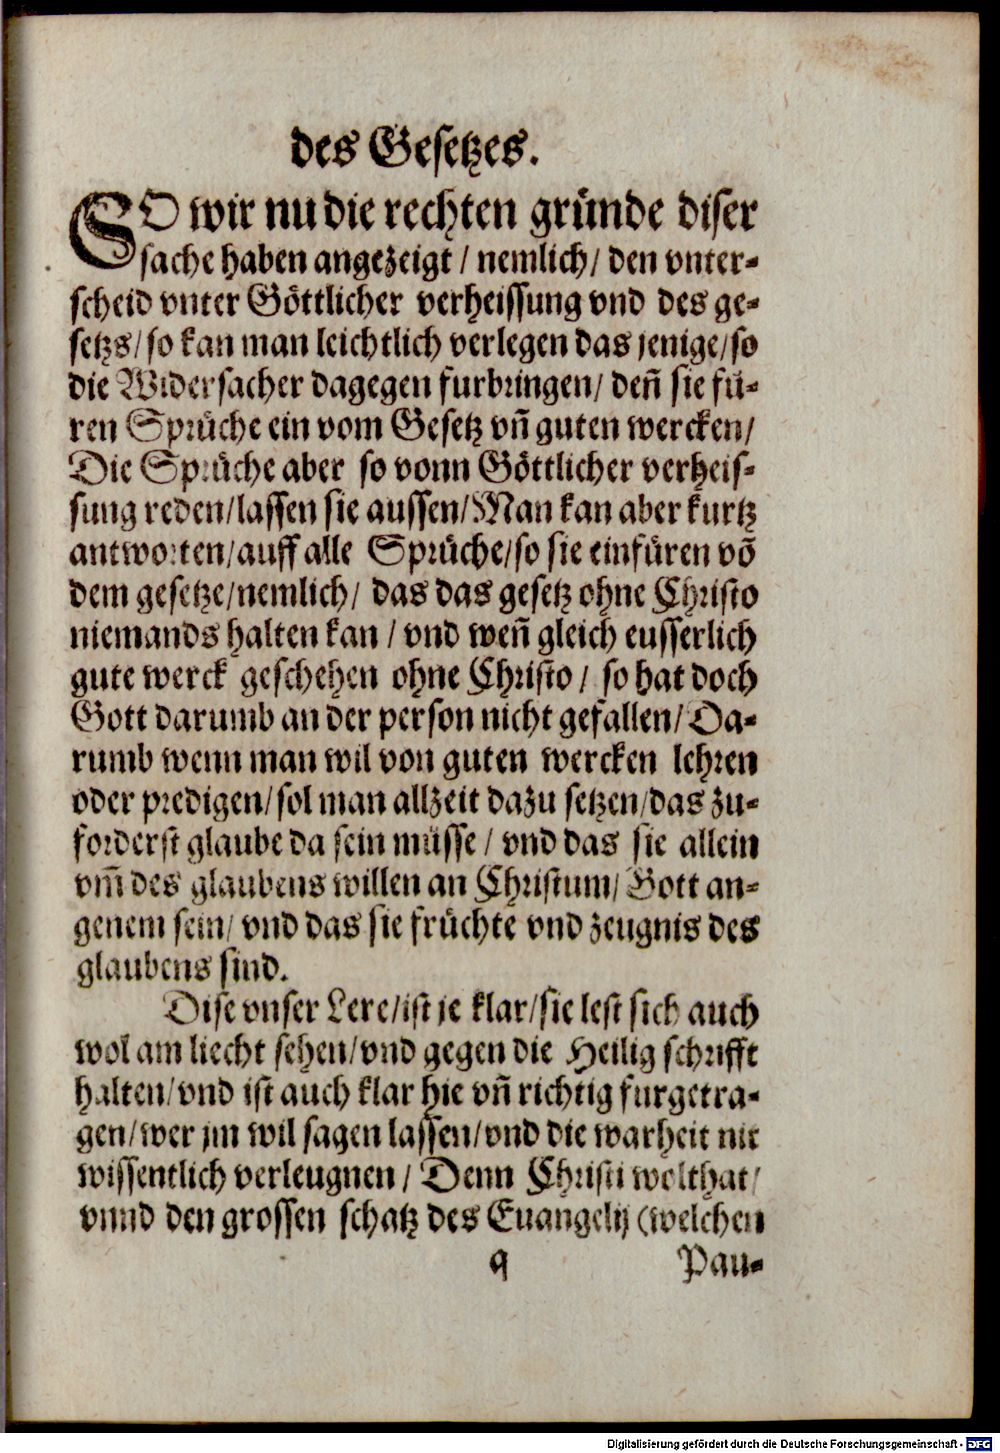 des Gesetzes.
SO wir nu die rechten gründe diser
sache haben angezeigt / nemlich / den vnter-
scheid vnter Göttlicher verheissung vnd des ge-
setzs / so kan man leichtlich verlegen das jenige / so
die Widersacher dagegen furbringen / deñ sie fü-
ren Sprüche ein vom Gesetz vñ guten wercken /
Die Sprüche aber so vonn Göttlicher verheis-
sung reden / lassen sie aussen / Man kan aber kurtz
antworten / auff alle Sprüche / so sie einfüren võ
dem gesetze / nemlich / das das gesetz ohne Christo
niemands halten kan / vnd weñ gleich eusserlich
gute werck geschehen ohne Christo / so hat doch
Gott darumb an der person nicht gefallen / Da-
rumb wenn man wil von guten wercken lehren
oder predigen / sol man allzeit dazu setzen / das zu-
forderst glaube da sein müsse / vnd das sie allein
vm̃ des glaubens willen an Christum / Gott an-
genem sein / vnd das sie früchte vnd zeugnis des
glaubens sind.
Dise vnser Lere / ist je klar / sie lest sich auch
wol am liecht sehen / vnd gegen die Heilig schrifft
halten / vnd ist auch klar hie vñ richtig furgetra-
gen / wer jm wil sagen lassen / vnd die warheit nit
wissentlich verleugnen / Denn Christi wolthat /
vnnd den grossen schatz des Euangelij (welchen
q Pau-
Digitalisierung gefördert durch die Deutsche Forschungsgemeinschaft - DFG